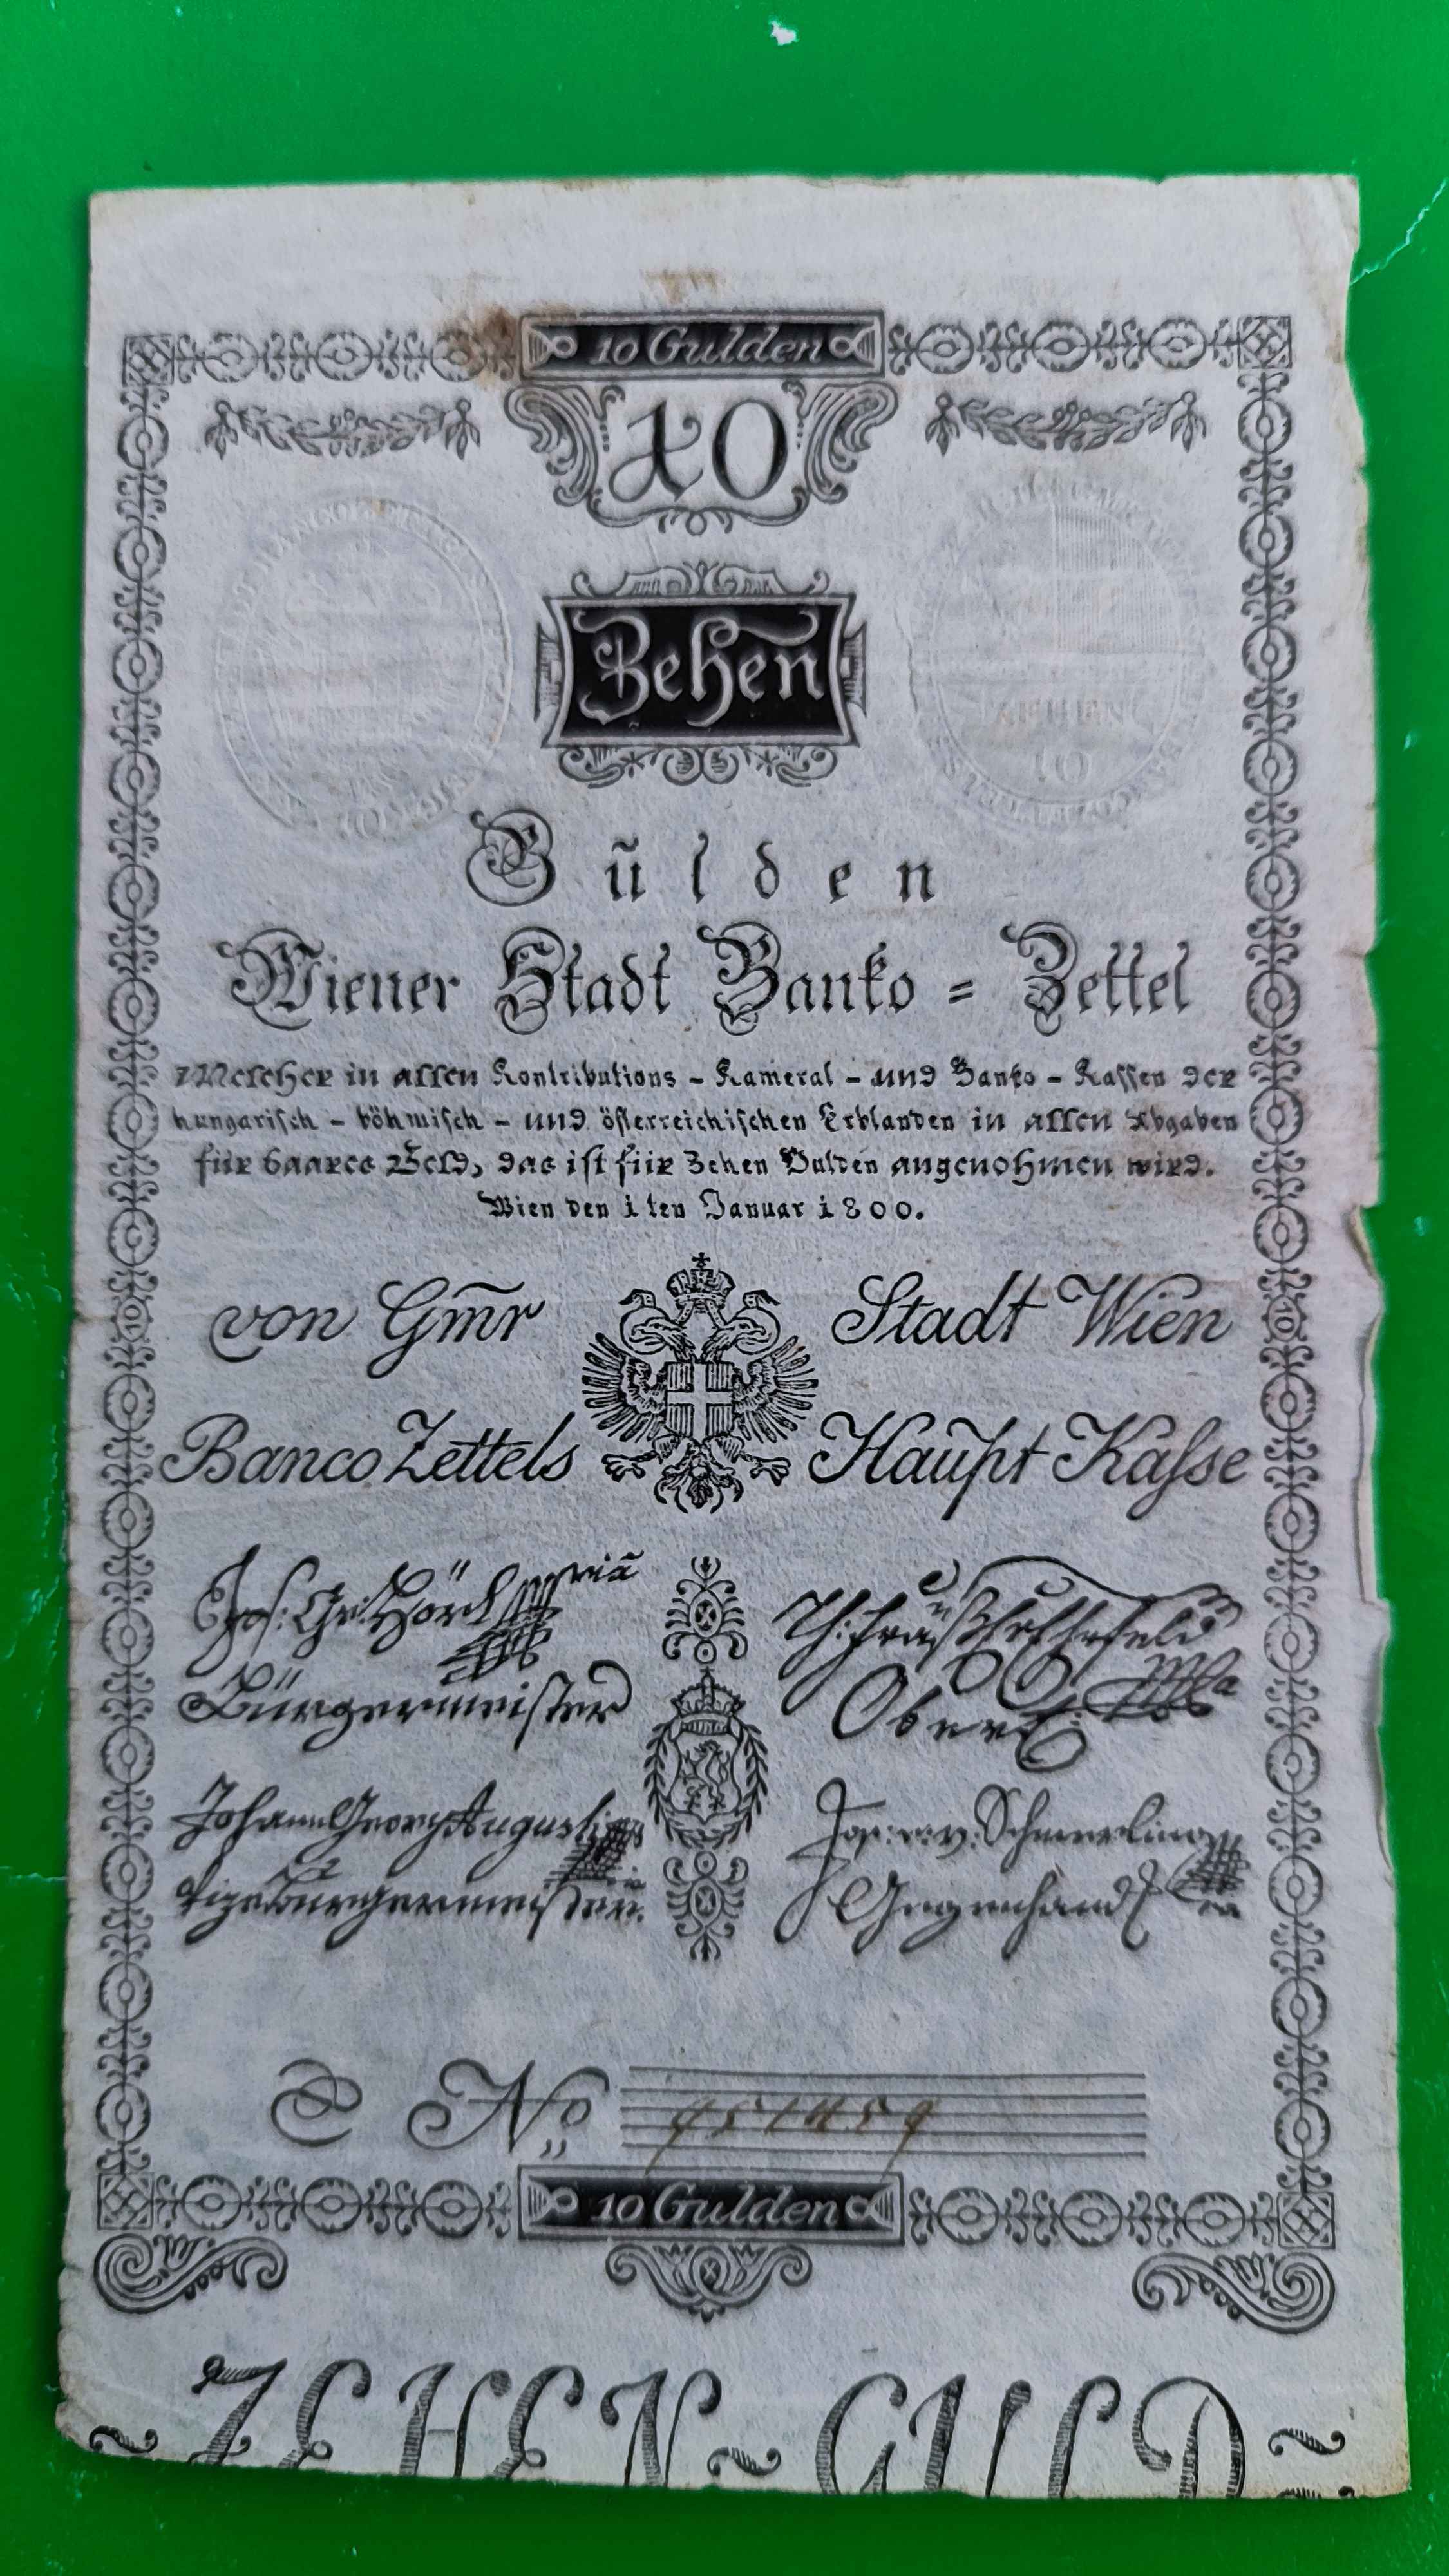 10 Gulden
10
Zehen
Gulden
Wiener Stadt Banko = Zettel
Welcher in allen Kontributions - Kameral - und Banko - Kassen der
hungarisch - böhmisch - und österreichischen Erblanden in allen Abgaben
für baares Geld, das ist für Zehen Gulden angenohmen wird.
Wien den 1ten Januar 1800.
von Gmr Stadt Wien
Banco Zettels Haupt Kasse
10 10
Jos: Geo: Hörl
Bürgermeister
Obere:
Johann Georg Augusti
Vizebürgermeister.
Jos: v: Schmerling
Gegenhandl
No
10 Gulden
ZEHEN = GULD